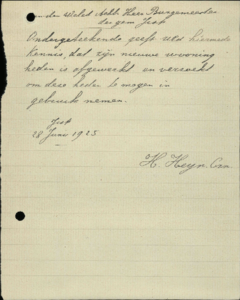 aan den Weled Achtb Heer Burgemeester
der gem Jisp
Ondergeteekende geeft Ued hiermede
kennis, dat zijn nieuwe woning
heden is afgewerkt en verzoekt
om deze heden te mogen in
gebruik nemen.
Jisp
28 Juni 1925
H. Heyn. Czn.